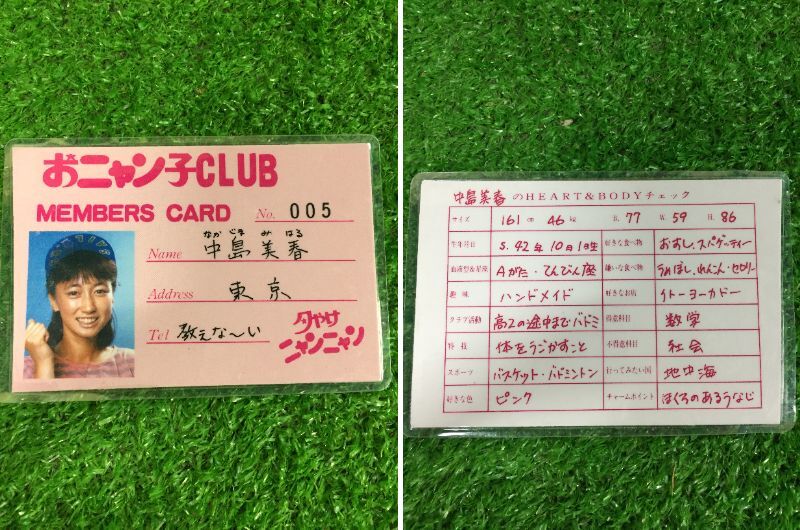 おニャン子CLUB
MEMBERS CARD No. 005
なかじま みはる
Name 中島美春
Address 東京
Tel 教えな〜い
夕やけニャンニャン
中島美春のHEART&BODYチェック
サイズ 161cm 46kg B.77 W.59 H.86
生年月日 S.42年10月1日生 好きな食べ物 おすし、スパゲッティー
血液型&星座 Aがた・てんびん座 嫌いな食べ物 うめぼし、れんこん・セロリー
趣味 ハンドメイド 好きなお店 イトーヨーカドー
クラブ活動 高2の途中までバドミ 得意科目 数学
特技 体をうごかすこと 不得意科目 社会
スポーツ バスケット・バドミントン 行ってみたい国 地中海
好きな色 ピンク チャームポイント ほくろのあるうなじ